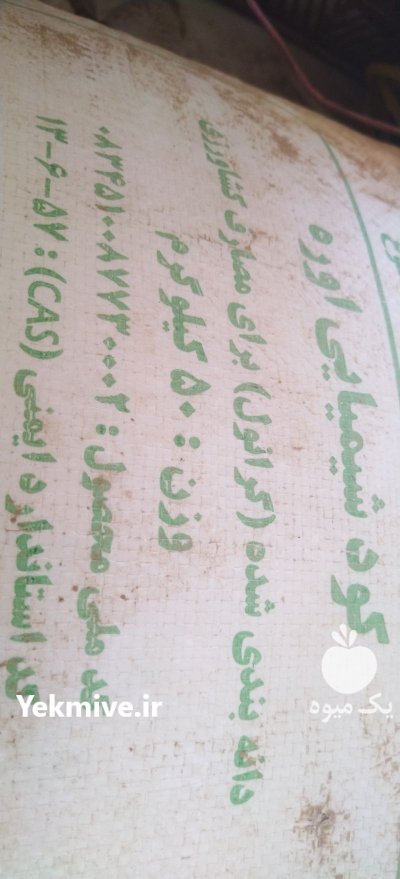 کود شیمیایی اوره
دانه بندی شده (گرانول) برای مصارف کشاورزی
وزن: ۵۰ کیلوگرم
کد ملی محصول: ۰۸۳۴۵۱۰۰۸۷۷۳۰۰۰۲
کد استاندارد ایمنی (CAS): ۵۷-۶-۱۳
یک میوه
Yekmive.ir